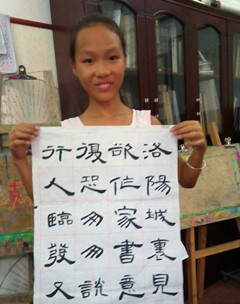 洛陽城裏見
欲作家書意
復恐勿勿說
行人臨發又